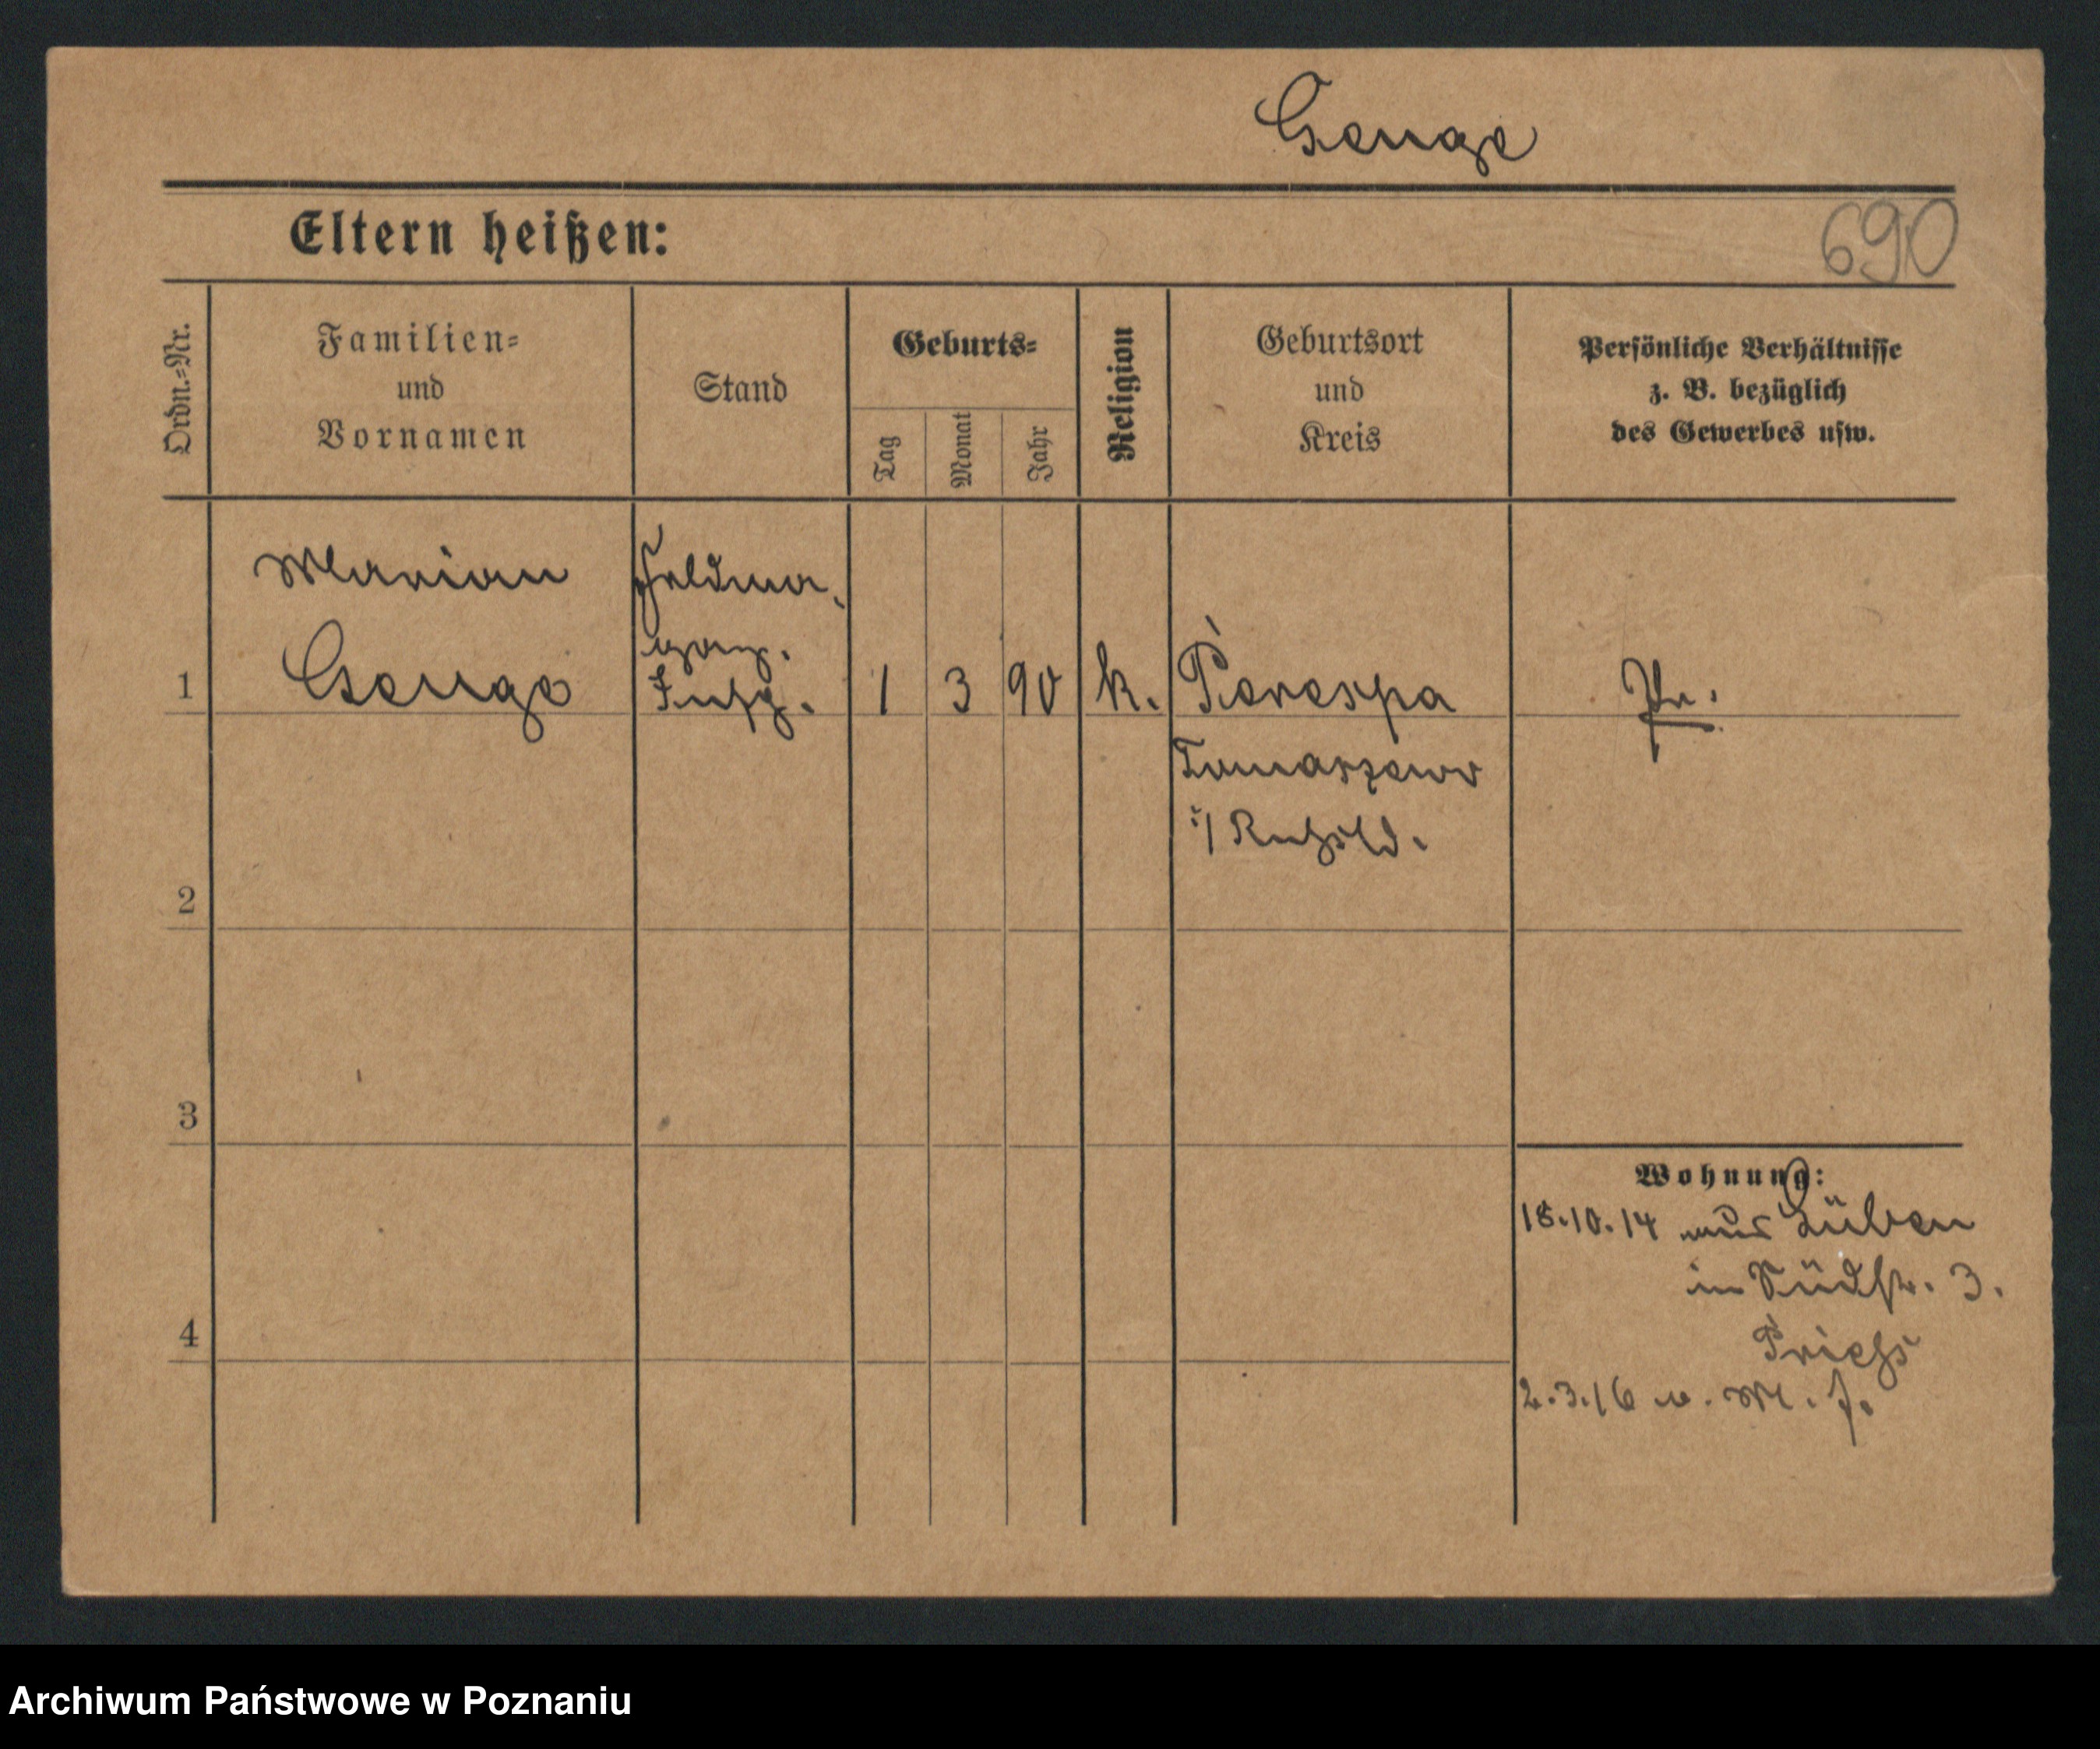 Genge
Eltern heißen:
690
Ordn.=Nr.
Familien=
und
Vornamen
Stand
Geburts=
Tag
Monat
Jahr
Religion
Geburtsort
und
Kreis
Persönliche Verhältnisse
z. B. bezüglich
des Gewerbes usw.
Marian
Genge
Feldma.
gaz.
Insp.
1
1
3
90
k.
Perespa
Tomaszow
i/ Rußld.
Pr.
2
3
4
Wohnung:
18.10.14 aus Lüben
in Südstr. 3.
2.3.16 n.
Archiwum Państwowe w Poznaniu